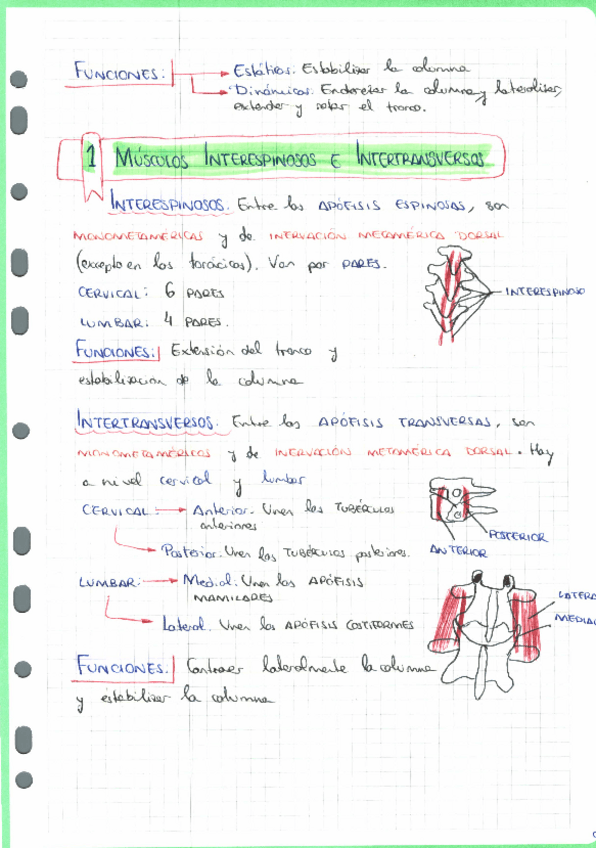 FUNCIONES: Estática. Estabilizar la columna
Dinámica. Enderezar la columna y lateralizar,
extender y rotar el tronco.
1 MÚSCULOS INTERESPINOSOS E INTERTRANSVERSOS
INTERESPINOSOS. Entre las APÓFISIS ESPINOSAS, son
MONOMETAMÉRICAS y de INERVACIÓN METAMÉRICA DORSAL
(excepto en las torácicas). Van por PARES.
CERVICAL: 6 PARES
INTERESPINOSO
LUMBAR: 4 PARES.
FUNCIONES: Extensión del tronco y
estabilización de la columna
INTERTRANSVERSOS. Entre las APÓFISIS TRANSVERSAS, son
MONOMETAMÉRICOS y de INERVACIÓN METAMÉRICA DORSAL. Hay
a nivel cervical y lumbar
CERVICAL: Anterior. Unen los TUBÉRCULOS
anteriores
POSTERIOR
Posterior. Unen los TUBÉRCULOS posteriores.
ANTERIOR
LUMBAR: Medial. Unen las APÓFISIS
MAMILARES
LATERA
MEDIA
Lateral. Unen las APÓFISIS COSTIFORMES
FUNCIONES. Contraer lateralmente la columna
y estabilizar la columna